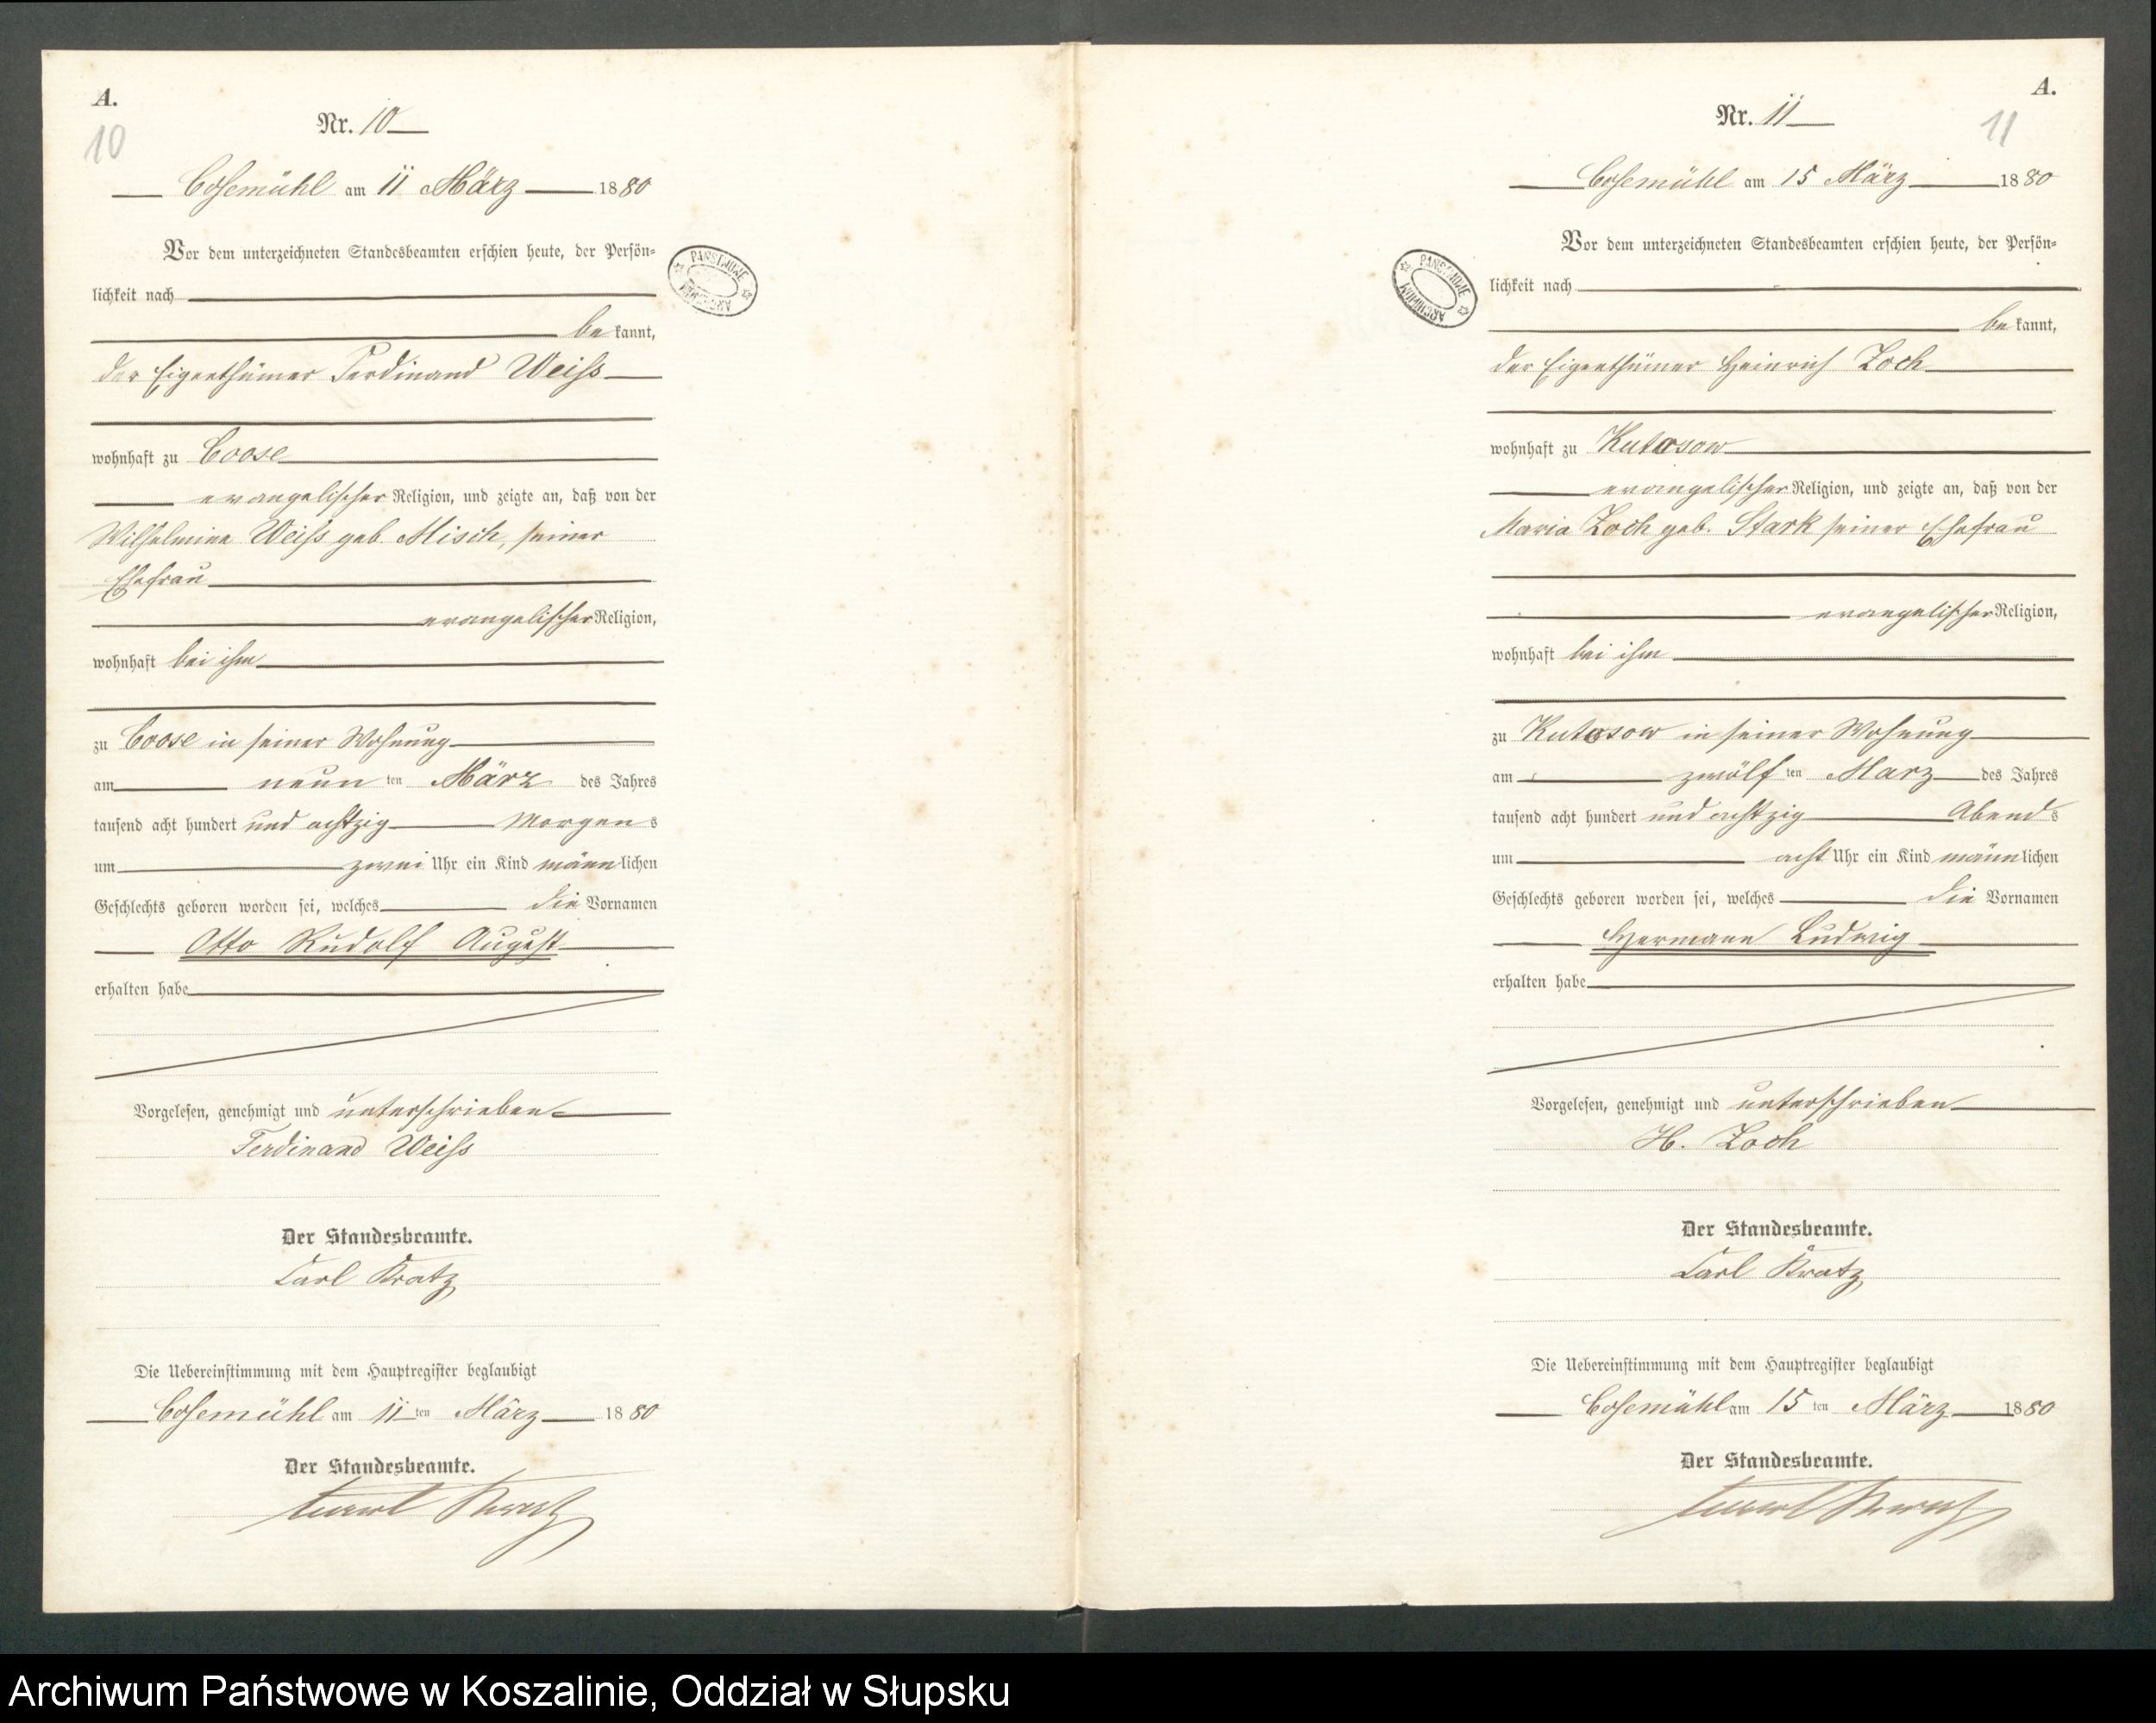 A.
10
Nr. 10
Cosemühl am 11 März 1880
Vor dem unterzeichneten Standesbeamten erschien heute, der Persön=
lichkeit nach
be kannt,
der Eigenthümer Ferdinand Weiss
wohnhaft zu Coose
evangelischer Religion, und zeigte an, daß von der
Wilhelmine Weiss geb. Misch, seiner
Ehefrau
evangelischer Religion,
wohnhaft bei ihm
zu Coose in seiner Wohnung
am neun ten März des Jahres
tausend acht hundert und achtzig Morgens
um zwei Uhr ein Kind männlichen
Geschlechts geboren worden sei, welches die Vornamen
Otto Rudolf August
erhalten habe
Vorgelesen, genehmigt und unterschrieben
Ferdinand Weiss
Der Standesbeamte.
Carl Kratz
Die Uebereinstimmung mit dem Hauptregister beglaubigt
Cosemühl am 11 ten März 1880
Der Standesbeamte.
PANSTWOWE ARCHIWUM
A.
11
Nr. 11
Cosemühl am 15 März 1880
Vor dem unterzeichneten Standesbeamten erschien heute, der Persön=
lichkeit nach
be kannt,
der Eigenthümer Heinrich Zoch
wohnhaft zu Kutosow
evangelischer Religion, und zeigte an, daß von der
Maria Zoch geb. Stark seiner Ehefrau
evangelischer Religion,
wohnhaft bei ihm
zu Kutosow in seiner Wohnung
am zwölf ten Marz des Jahres
tausend acht hundert und achtzig Abends
um acht Uhr ein Kind männlichen
Geschlechts geboren worden sei, welches die Vornamen
Hermann Ludwig
erhalten habe
Vorgelesen, genehmigt und unterschrieben
H. Zoch
Der Standesbeamte.
Carl Kratz
Die Uebereinstimmung mit dem Hauptregister beglaubigt
Cosemühl am 15 ten März 1880
Der Standesbeamte.
PANSTWOWE ARCHIWUM
Archiwum Państwowe w Koszalinie, Oddział w Słupsku